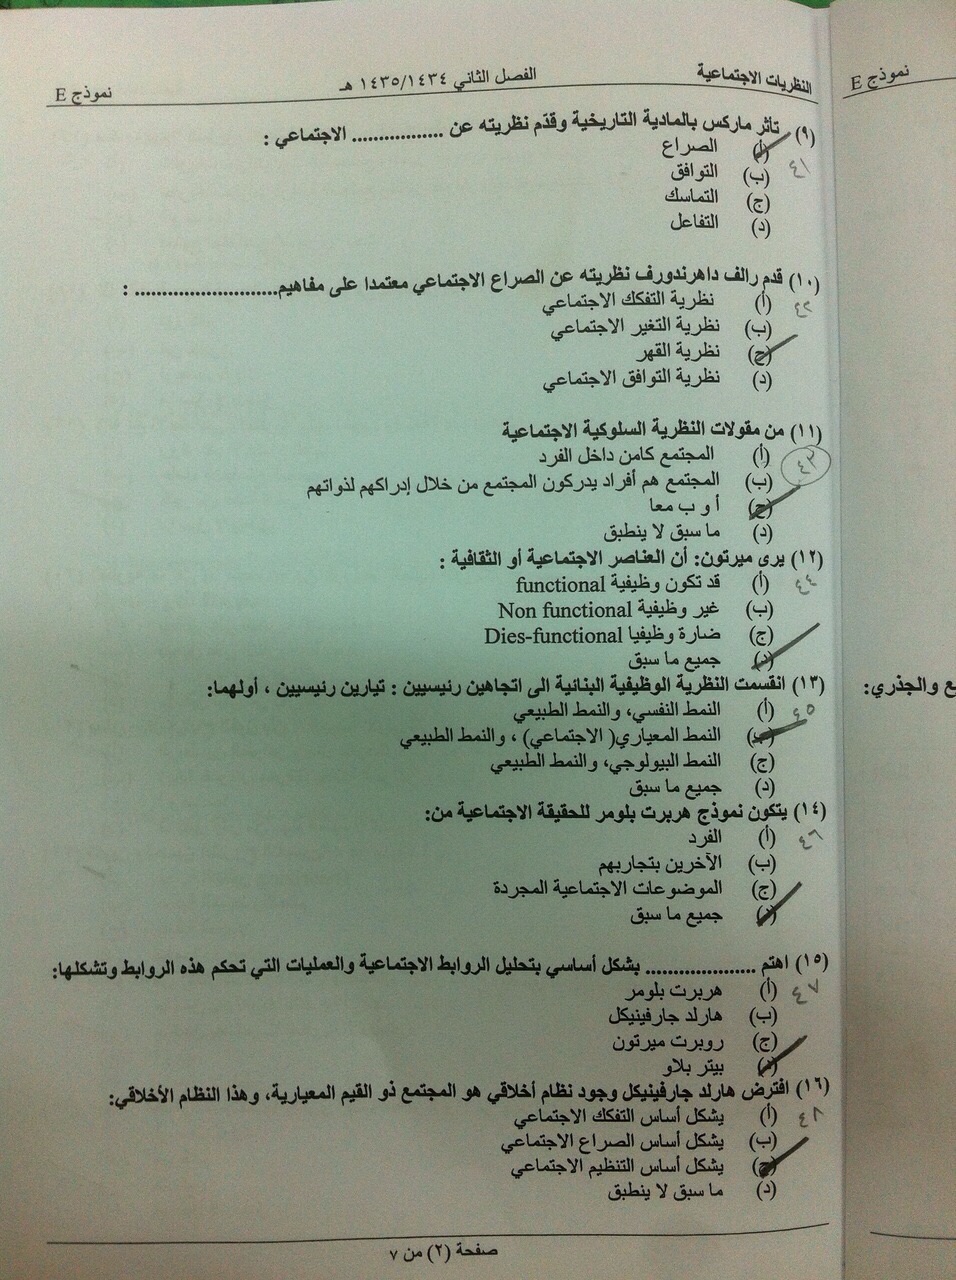 النظريات الاجتماعية الفصل الثاني ١٤٣٥/١٤٣٤ هـ نموذج E
(٩) تأثر ماركس بالمادية التاريخية وقدّم نظريته عن ................ الاجتماعي :
(أ) الصراع
(ب) التوافق
(ج) التماسك
(د) التفاعل
(١٠) قدم رالف داهرندورف نظريته عن الصراع الاجتماعي معتمدا على مفاهيم.......................... :
(أ) نظرية التفكك الاجتماعي
(ب) نظرية التغير الاجتماعي
(ج) نظرية القهر
(د) نظرية التوافق الاجتماعي
(١١) من مقولات النظرية السلوكية الاجتماعية
(أ) المجتمع كامن داخل الفرد
(ب) المجتمع هم أفراد يدركون المجتمع من خلال إدراكهم لذواتهم
(ج) أ و ب معا
(د) ما سبق لا ينطبق
(١٢) يرى ميرتون: أن العناصر الاجتماعية أو الثقافية :
(أ) قد تكون وظيفية functional
(ب) غير وظيفية Non functional
(ج) ضارة وظيفيا Dies-functional
(د) جميع ما سبق
(١٣) انقسمت النظرية الوظيفية البنائية الى اتجاهين رئيسيين : تيارين رئيسيين ، أولهما:
(أ) النمط النفسي، والنمط الطبيعي
(ب) النمط المعياري( الاجتماعي) ، والنمط الطبيعي
(ج) النمط البيولوجي، والنمط الطبيعي
(د) جميع ما سبق
(١٤) يتكون نموذج هربرت بلومر للحقيقة الاجتماعية من:
(أ) الفرد
(ب) الآخرين بتجاربهم
(ج) الموضوعات الاجتماعية المجردة
(د) جميع ما سبق
(١٥) اهتم .................... بشكل أساسي بتحليل الروابط الاجتماعية والعمليات التي تحكم هذه الروابط وتشكلها:
(أ) هربرت بلومر
(ب) هارلد جارفينيكل
(ج) روبرت ميرتون
(د) بيتر بلاو
(١٦) افترض هارلد جارفينيكل وجود نظام أخلاقي هو المجتمع ذو القيم المعيارية، وهذا النظام الأخلاقي:
(أ) يشكل أساس التفكك الاجتماعي
(ب) يشكل أساس الصراع الاجتماعي
(ج) يشكل أساس التنظيم الاجتماعي
(د) ما سبق لا ينطبق
صفحة (٢) من ٧
نموذج E
ع والجذري: